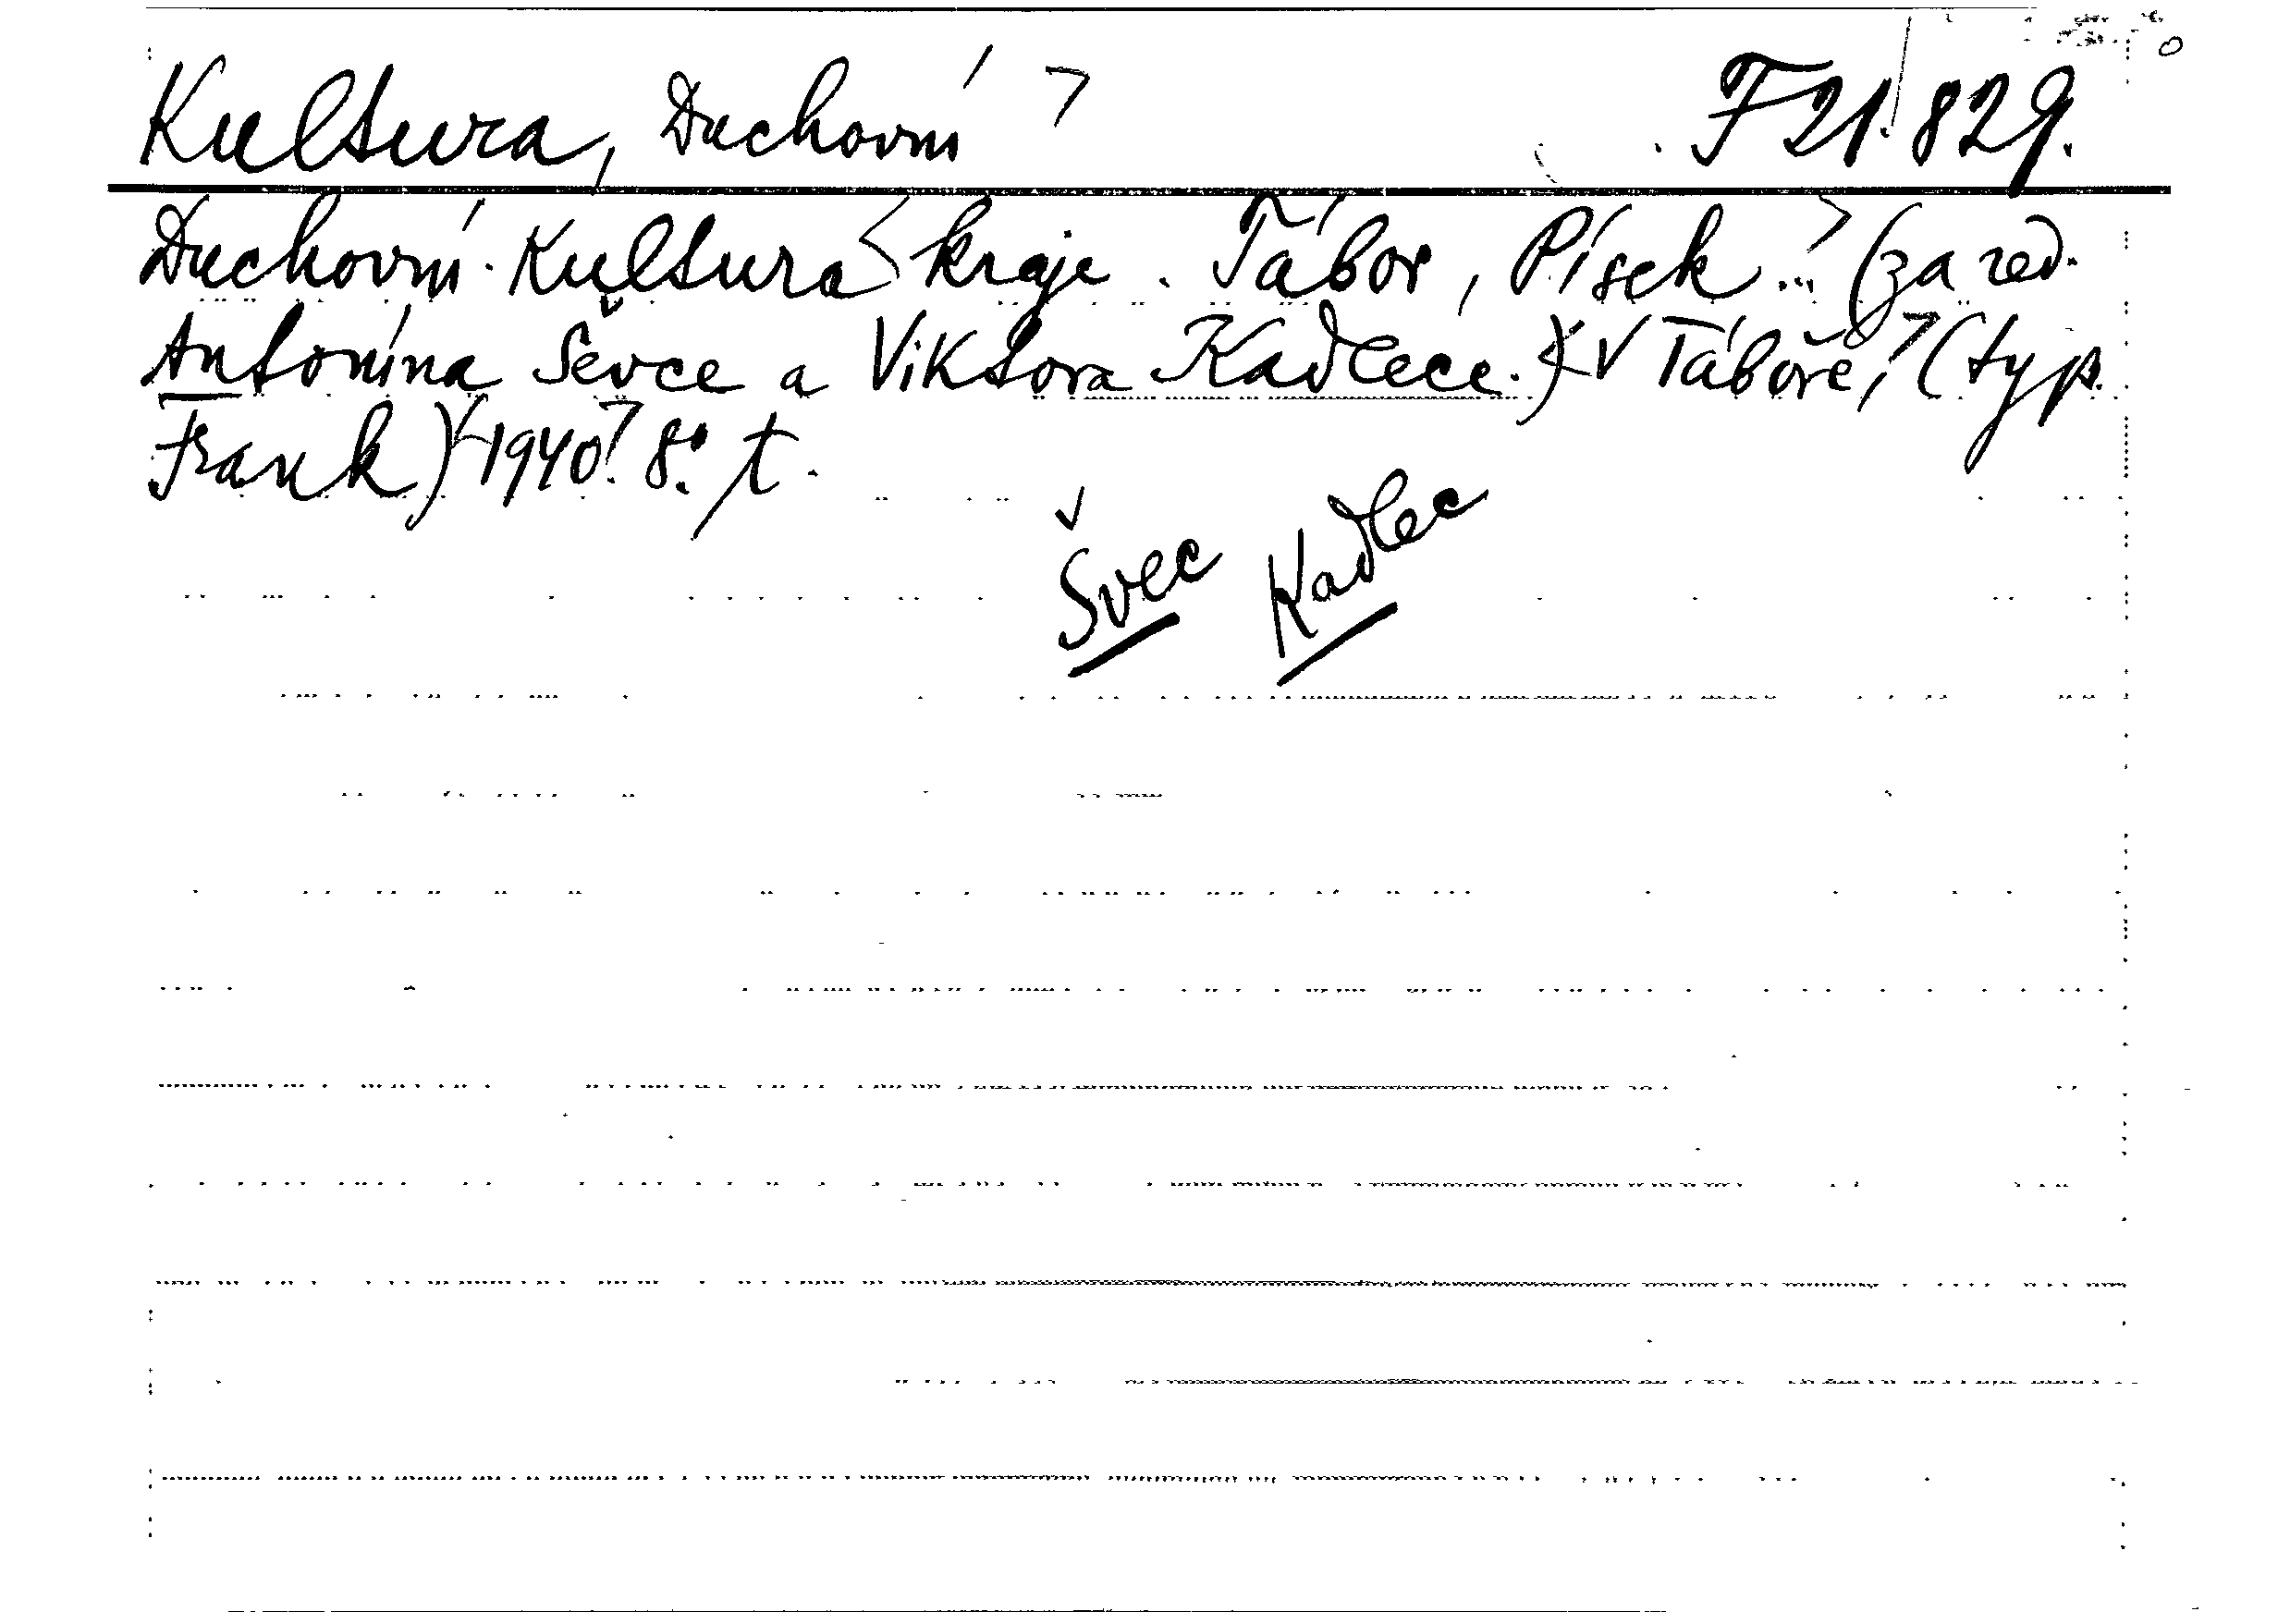 Kultura, Duchovní F 21.829.
Duchovní Kultura kraje. Tábor, Písek... (za red.
Antonína Ševce a Viktora Kadlece.) V Táboře, (typ.
Frank) 1940. 8°. t.
Švec Kadlec